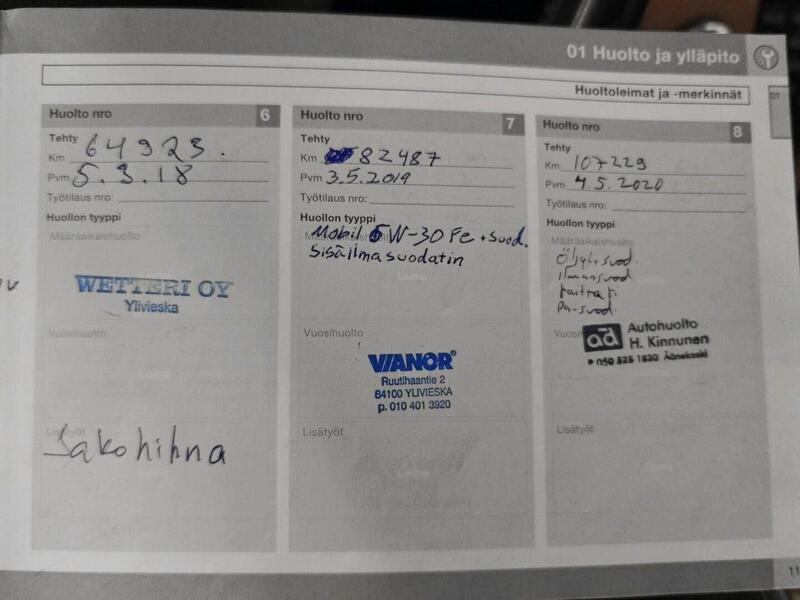 01 Huolto ja ylläpito
Huoltoleimat ja -merkinnät
Huolto nro 6
Tehty
Km 64923.
Pvm 5.3.18
Työtilaus nro:
Huollon tyyppi
Määräaikaishuolto
WETTERI OY
Ylivieska
Vuosihuolto
Lisätyöt
Jakohihna
Huolto nro 7
Tehty
Km 82487
Pvm 3.5.2019
Työtilaus nro:
Huollon tyyppi
Mobil 5W-30 Fe + suod.
Sisäilmasuodatin
Leima
Vuosihuolto
VIANOR®
Ruutihaantie 2
84100 YLIVIESKA
p. 010 401 3920
Lisätyöt
Huolto nro 8
Tehty
Km 107229
Pvm 4.5.2020
Työtilaus nro:
Huollon tyyppi
Määräaikaishuolto
Öljyt+suod.
ilmansuod
raitis i
pa-suod.
ad Autohuolto
H. Kinnunen
050 525 1830 Äänekoski
Lisätyöt
11